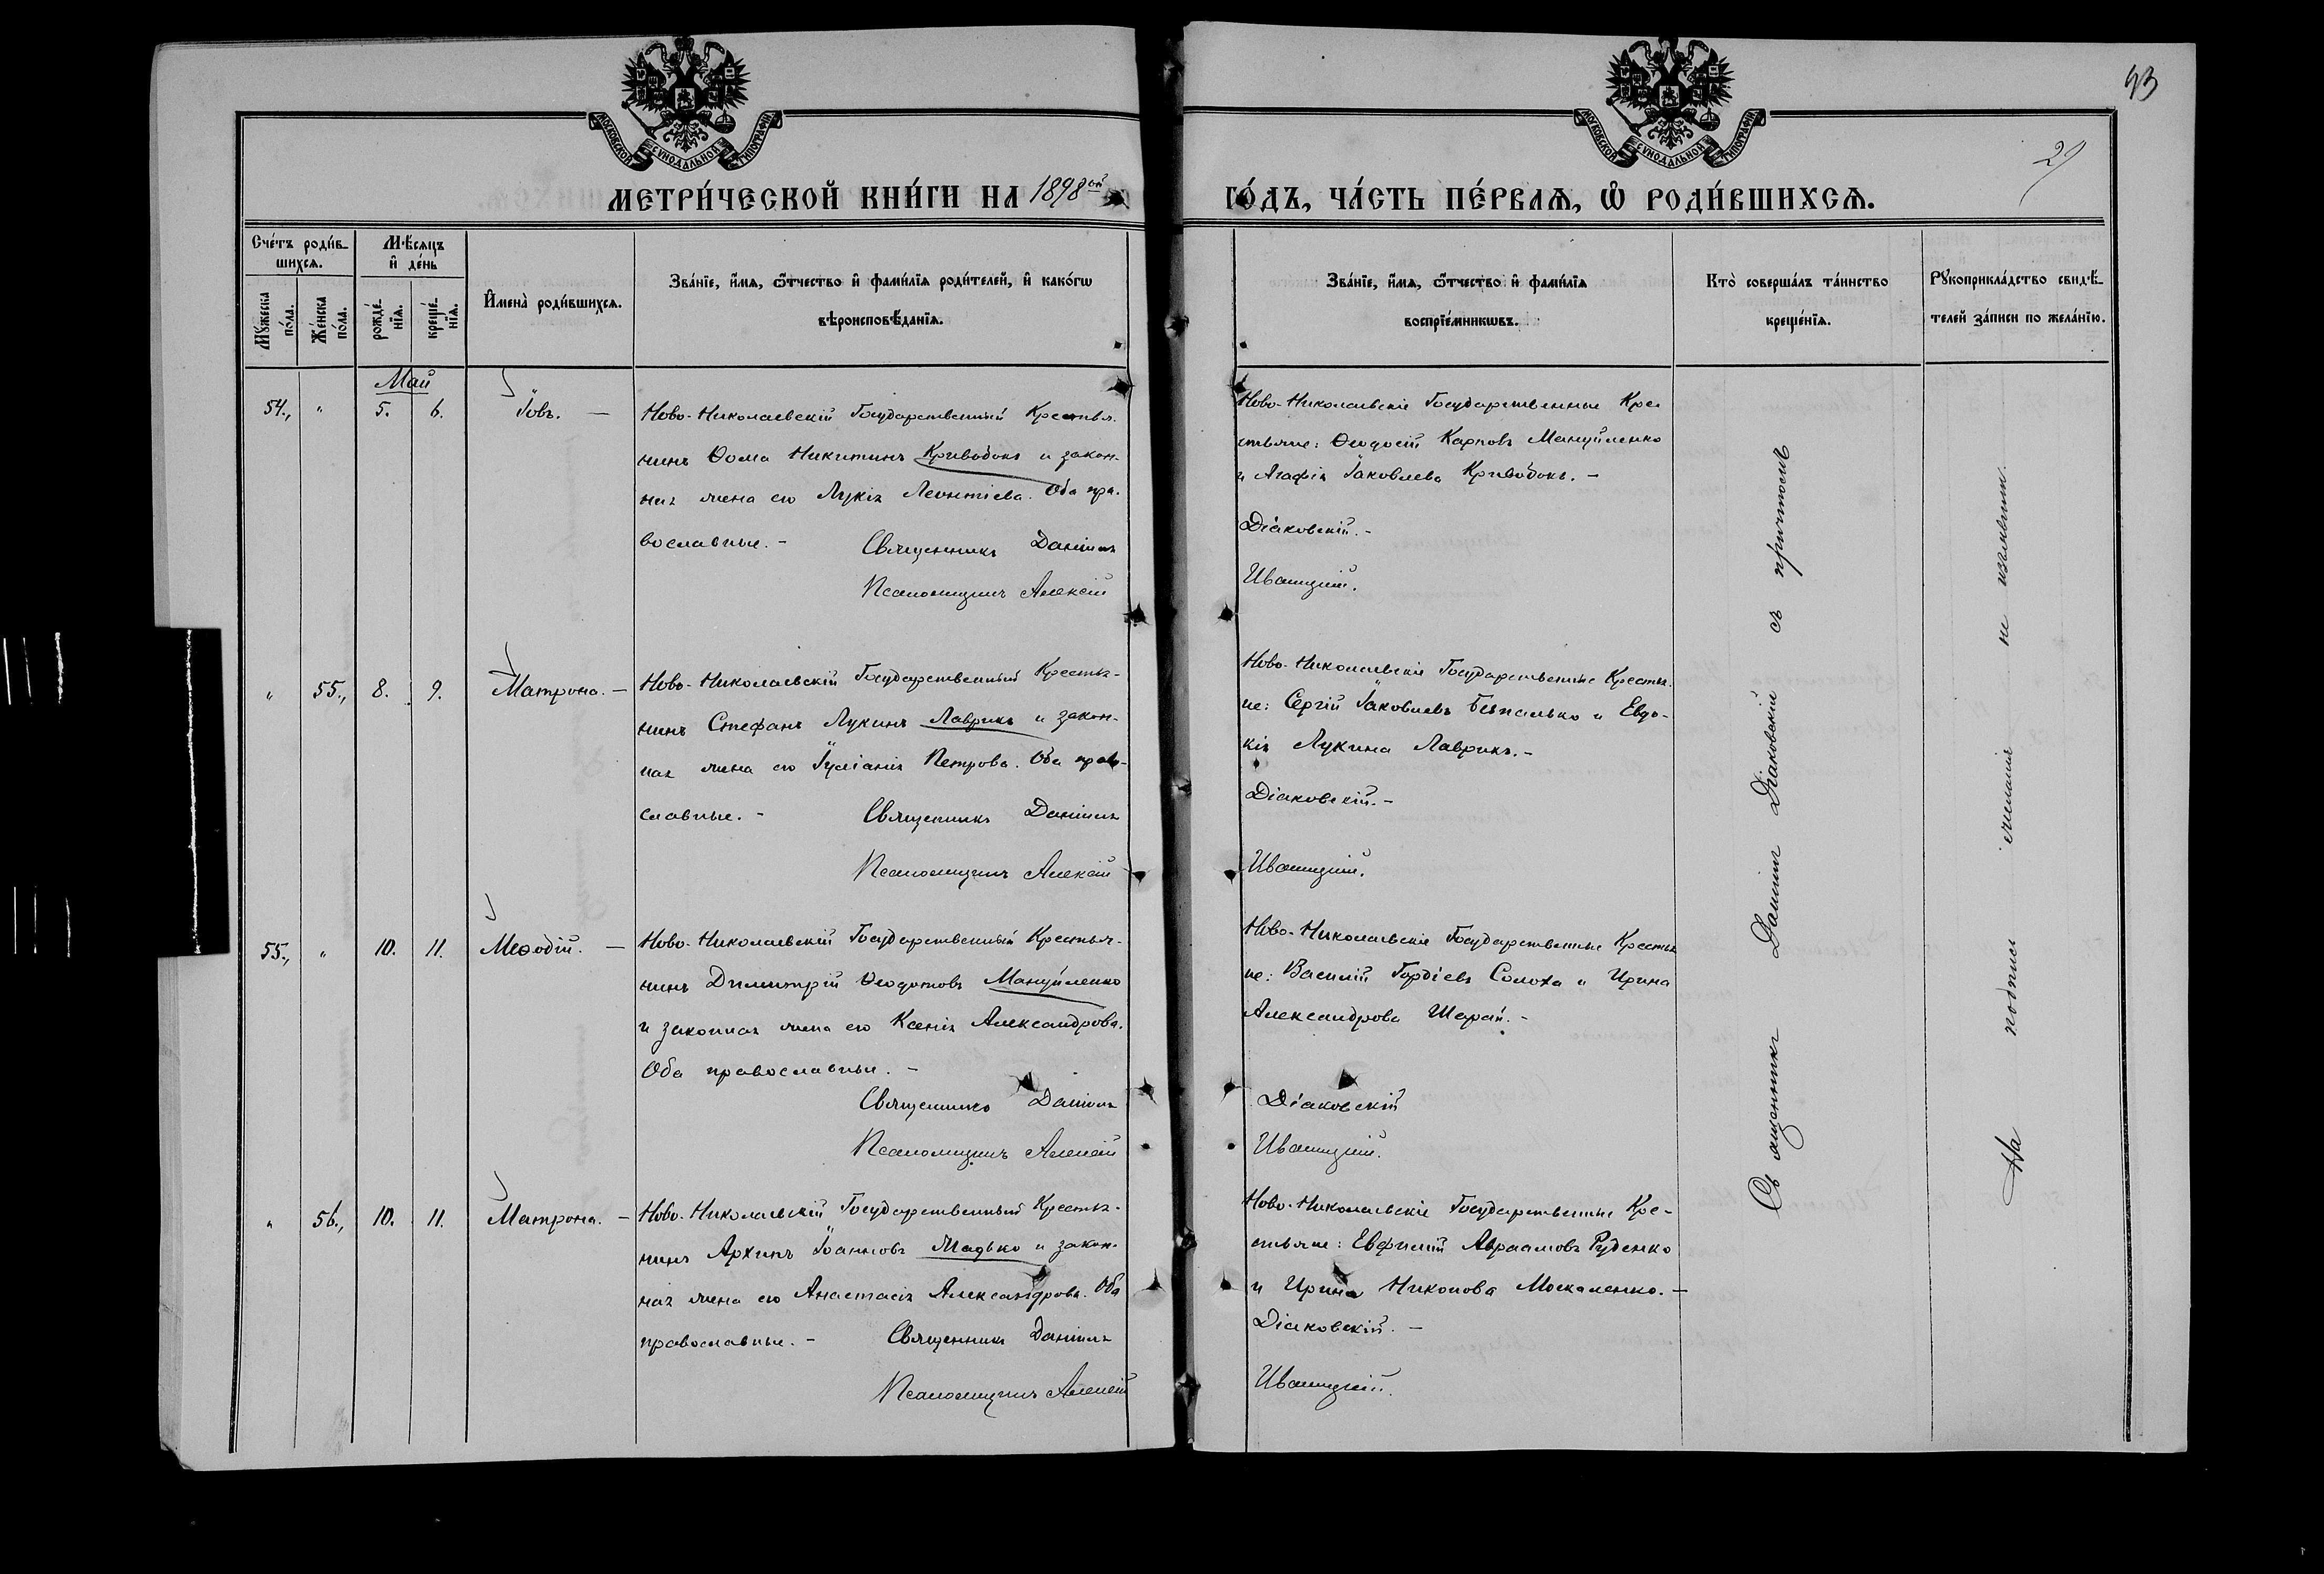 93
29
МОСКОВСКОЙ СѴНОДАЛЬНОЙ ТИПОГРАФІИ
МОСКОВСКОЙ СѴНОДАЛЬНОЙ ТИПОГРАФІИ
МЕТРИ́ЧЕСКОЙ КНИ́ГИ НА 1898ой
ГО́ДЪ, ЧА́СТЬ ПЕ́РВАѦ, Ѽ РОДИ́ВШИХСѦ.
Сче́тъ роди́в-
шихсѧ.
Мꙋжеска по́ла.
Же́нска по́ла.
Мѣ́сѧцъ
и҆ де́нь
рожде́-
нїѧ.
креще́-
нїѧ.
И҆мена̀ роди́вшихсѧ.
Зва́нїе, и҆́мѧ, ѻ҆́тчество и҆ фами́лїѧ роди́телей, и҆ како́гѡ
вѣроисповѣ́данїѧ.
Зва́нїе, и҆́мѧ, ѻ҆́тчество и҆ фами́лїѧ
воспрїе́мникѡвъ.
Кто̀ соверша́лъ та́инство
креще́нїѧ.
Рꙋкоприкла́дство свидѣ́-
телей за́писи по жела́нїю.
Май
54., " 5. 6. Іовъ. —
Ново-Николаевскій Государственный Крестья-
нинъ Ѳома Никитинъ Кривобокъ и закон-
ная жена его Лукія Леонтіева. Оба пра-
вославные. - Священникъ Даніилъ
Псаломщикъ Алексій
Ново-Николаевскіе Государственные Кре-
стьяне: Ѳеодосій Карповъ Мануйленко
и Агафія Іаковлева Кривобокъ. -
Діаковскій. -
Иваницкій.
" 55., 8. 9. Матрона. —
Ново-Николаевскій Государственный Крестья-
нинъ Стефанъ Лукинъ Лаврикъ и закон-
ная жена его Іуліанія Петрова. Оба право-
славные. - Священникъ Даніилъ
Псаломщикъ Алексій
Ново-Николаевскіе Государственные Крестья-
не: Сергій Іаковлевъ Безпалько и Евдо-
кія Лукина Лаврикъ. -
Діаковскій. -
Иваницкій.
55., " 10. 11. Меѳодій. —
Ново-Николаевскій Государственный Крестья-
нинъ Димитрій Ѳеодотовъ Мануйленко
и законная жена его Ксенія Александрова.
Оба православные. -
Священникъ Даніилъ
Псаломщикъ Алексій
Ново-Николаевскіе Государственные Крестья
не: Василій Гордіевъ Солоха и Ирина
Александрова Шарай. -
Діаковскій
Иваницкій.
" 56., 10. 11. Матрона. —
Ново-Николаевскій Государственный Крестья-
нинъ Архипъ Іоанновъ Мадько и закон-
ная жена его Анастасія Александрова. Оба
православные. - Священникъ Даніилъ
Псаломщикъ Алексій
Ново-Николаевскіе Государственные Кре-
стьяне: Евфимій Авраамовъ Руденко
и Ирина Никонова Москаленко. —
Діаковскій. —
Иваницкій.
Священникъ Даніилъ Діаковскій съ причтомъ
На подписи желанія не изъявили